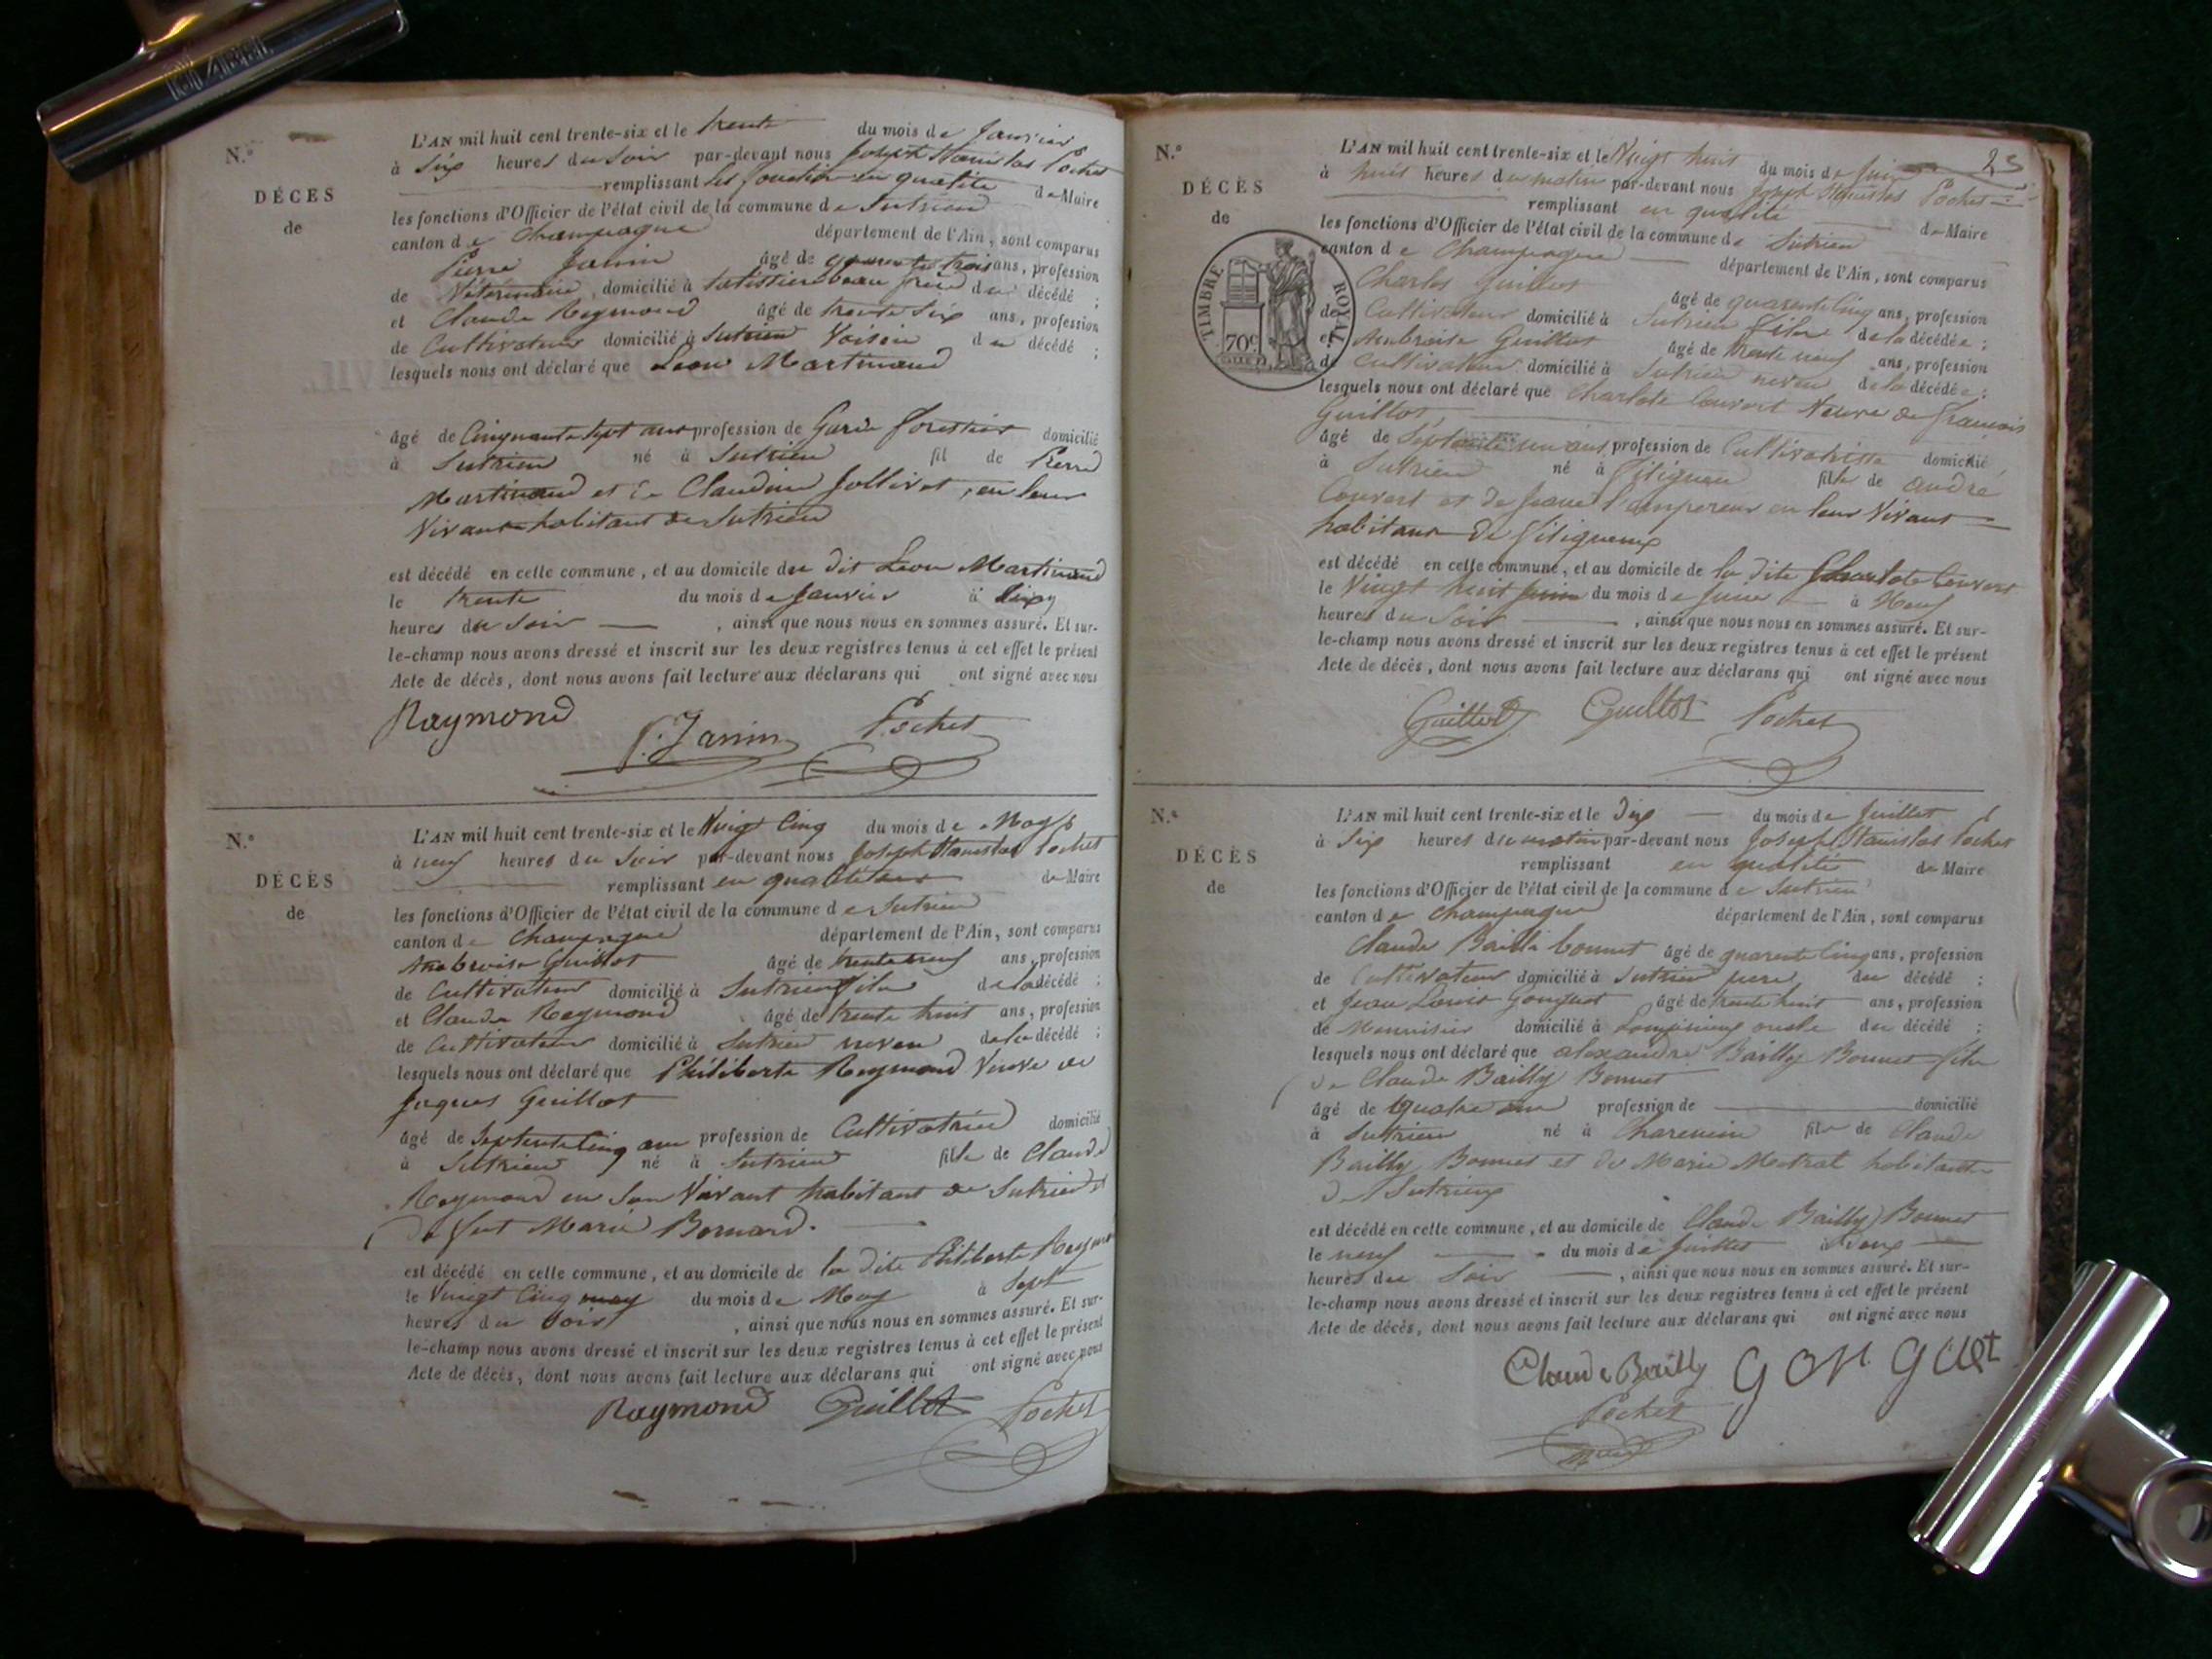 N.°
DÉCÈS
de
L'AN mil huit cent trente-six et le trente du mois de Janvier
à six heures du soir par-devant nous Joseph Stanislas Pochet
remplissant les fonction en qualité de Maire
les fonctions d'Officier de l'état civil de la commune de Sutrieu
canton de Champagne département de l'Ain, sont comparus
Pierre Janin âgé de quarente trois ans, profession
de Vétérinaire, domicilié à beau frere du décédé ;
et Claude Reymond âgé de trente six ans, profession
de Cultivateur domicilié à Sutrieu Voisin du décédé ;
lesquels nous ont déclaré que Léon Martinand
âgé de Cinquante sept ans profession de Garde forestier domicilié
à Sutrieu né à Sutrieu fil de Pierre
Martinand et de Claudine Jollivet, en leur
Vivant habitant de Sutrieu
est décédé en cette commune, et au domicile du dit Léon Martinand
le trente du mois de Janvier à
heures du soir , ainsi que nous nous en sommes assuré. Et sur-
le-champ nous avons dressé et inscrit sur les deux registres tenus à cet effet le présent
Acte de décès, dont nous avons fait lecture aux déclarans qui ont signé avec nous
Raymond P. Janin Pochet
N.°
DÉCÈS
de
L'AN mil huit cent trente-six et le Vingt Cinq du mois de May
à neuf heures du soir par-devant nous Joseph Stanislas Pochet
remplissant en qualité de Maire
les fonctions d'Officier de l'état civil de la commune de Sutrieu
canton de Champagne département de l'Ain, sont comparus
Ambroise Guillot âgé de trente neuf ans, profession
de Cultivateur domicilié à Sutrieu fils de la décédé ;
et Claude Reymond âgé de trente huit ans, profession
de Cultivateur domicilié à Sutrieu neveu de la décédé ;
lesquels nous ont déclaré que Philiberte Reymond Veuve de
Jaques Guillot
âgé de Septente Cinq ans profession de Cultivatrice domicilié
à Sutrieu né à Sutrieu fille de Claude
Reymond en son Vivant habitant de Sutrieu et
de feut Marie Bernard.
est décédé en cette commune, et au domicile de la dite Philiberte Reymond
le Vingt Cinq may du mois de May à Sept
heures du Soir , ainsi que nous nous en sommes assuré. Et sur-
le-champ nous avons dressé et inscrit sur les deux registres tenus à cet effet le présent
Acte de décès, dont nous avons fait lecture aux déclarans qui ont signé avec nous
Raymond Guillot Pochet
25
N.°
DÉCÈS
de
TIMBRE ROYAL
70c
L'AN mil huit cent trente-six et le Vingt huit du mois de Juin
à huit heures du matin par-devant nous Joseph Stanislas Pochet
remplissant en qualité de Maire
les fonctions d'Officier de l'état civil de la commune de Sutrieu
canton de Champagne département de l'Ain, sont comparus
Charles Guillot âgé de quarente Cinq ans, profession
de Cultivateur domicilié à Sutrieu fils de la décédée ;
et Ambroise Guillot âgé de trente neuf ans, profession
de Cultivateur domicilié à Sutrieu neveu de la décédée ;
lesquels nous ont déclaré que Charlote Convert Veuve de francois
Guillot
âgé de Septente un ans profession de Cultivatrisse domicilié
à Sutrieu né à fitignieu fille de andré
Convert et de Jeanne l'ampereur en leur Vivant
habitant de fitignieux
est décédé en cette commune, et au domicile de la dite Charlote Convert
le Vingt huit juin du mois de Juin à Neuf
heures du Soir , ainsi que nous nous en sommes assuré. Et sur-
le-champ nous avons dressé et inscrit sur les deux registres tenus à cet effet le présent
Acte de décès, dont nous avons fait lecture aux déclarans qui ont signé avec nous
Guillot Guillot Pochet
N.°
DÉCÈS
de
L'AN mil huit cent trente-six et le Dix du mois de Juillet
à Six heures du matin par-devant nous Joseph Stanislas Pochet
remplissant en qualité de Maire
les fonctions d'Officier de l'état civil de la commune de Sutrieu
canton de Champagne département de l'Ain, sont comparus
Claude Bailli bonnet âgé de quarente Cinq ans, profession
de Cultivateur domicilié à Sutrieu pere du décédé ;
et Jean Louis Gonguet âgé de trente huit ans, profession
de Menuisier domicilié à oncle du décédé ;
lesquels nous ont déclaré que alexandre Bailly Bonnet fils
de Claude Bailly Bonnet
âgé de quatre ans profession de domicilié
à Sutrieu né à Charencin fils de Claude
Bailly Bonnet et de Marie Mestrat habitants
de Sutrieux
est décédé en cette commune, et au domicile de Claude Bailly Bonnet
le neuf du mois de Juillet à Deux
heures du Soir , ainsi que nous nous en sommes assuré. Et sur-
le-champ nous avons dressé et inscrit sur les deux registres tenus à cet effet le présent
Acte de décès, dont nous avons fait lecture aux déclarans qui ont signé avec nous
Claude Bailly GONGUET
Pochet